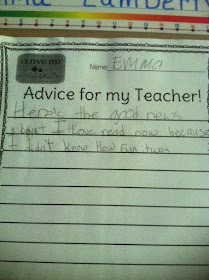 Emma Lamberty
I LOVE MY
Name Emma
Advice for my Teacher!
Here's the good news
about I love read now because
I didn't know How Fun it was